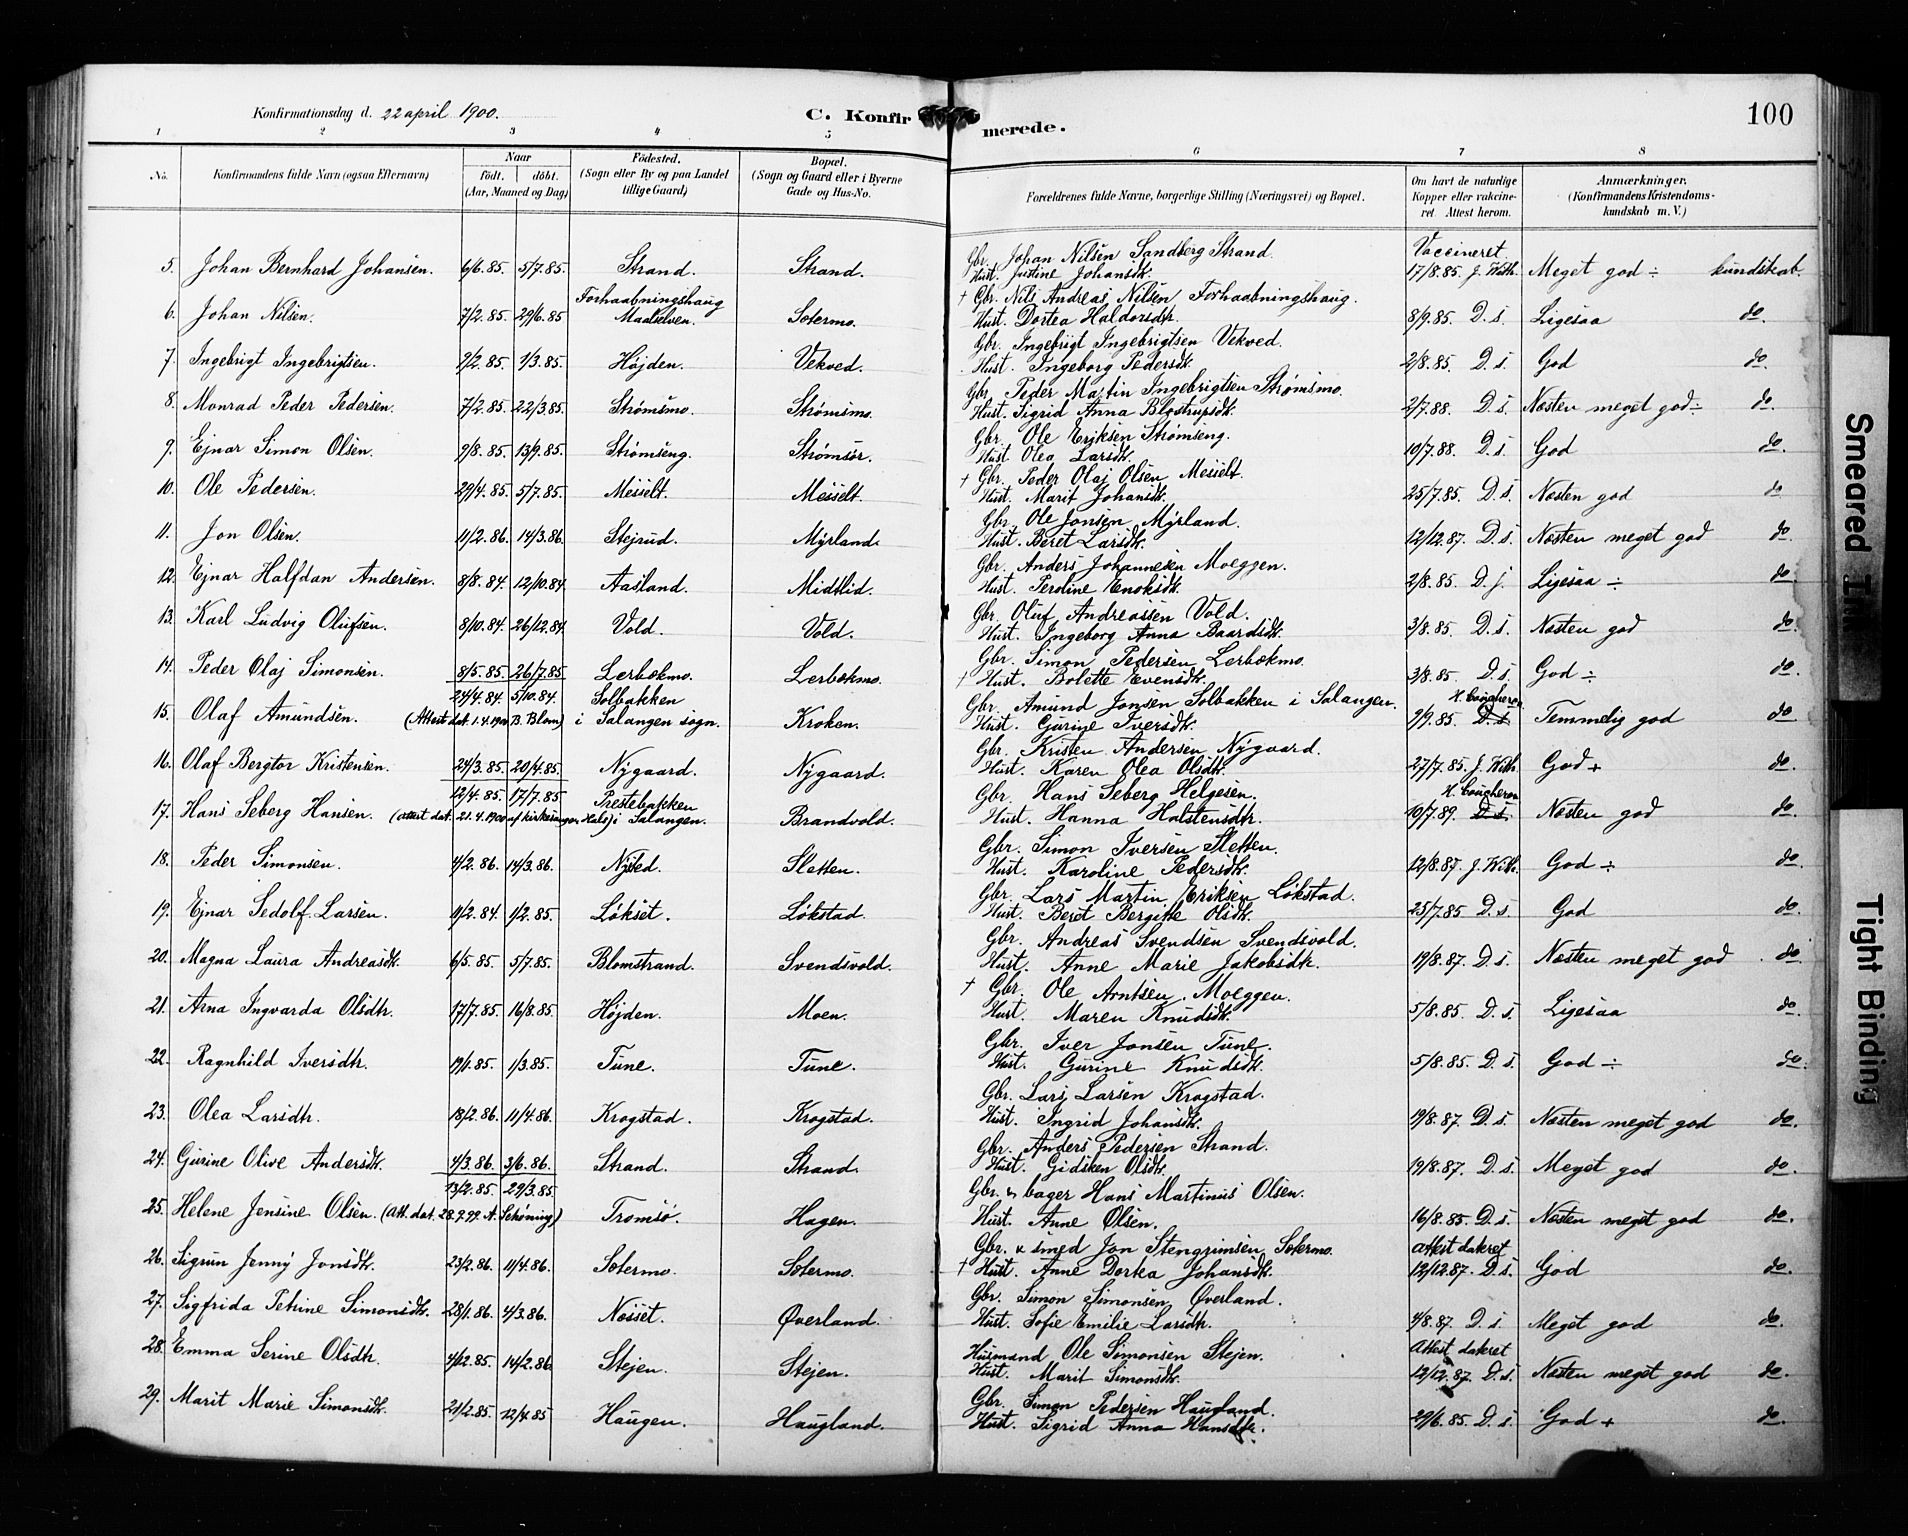 Konfirmationsdag d. 22 april 1900.
C. Konfirmerede.
100
1 2 3 4 5 6 7 8
No. Konfirmandens fulde Navn (ogsaa Efternavn) Naar födt. döbt. (Aar, Maaned og Dag) Födested. (Sogn eller By og paa Landet tillige Gaard) Bopæl. (Sogn og Gaard eller i Byerne Gade og Hus-No. Forældrenes fulde Navne, borgerlige Stilling (Næringsvei) og Bopæl. Om havt de naturlige Kopper eller vakcineret. Attest herom. Anmærkninger. (Konfirmandens Kristendomskundskab m. V.)
Gbr. Johan Nilsen Sandberg Strand. Vaccineret
5. Johan Bernhard Johansen. 6/6.85. 5/7.85. Strand. Strand. Hust. Justine Johansdt. 17/8.85. J. With. Meget god ÷ kundskab.
Forhaabningshaug † Gbr. Nils Andreas Nilsen Forhaabningshaug.
6. Johan Nilsen. 7/2.85. 29/6.85 Maalselven. Sætermo. Hust. Dortea Haldorsdtr. 8/9.85. D. s. Ligesaa do.
Gbr. Ingebrigt Ingebrigtsen Vekved.
7. Ingebrigt Ingebrigtsen. 9/2.85. 1/3.85. Højden. Vekved. Hust. Ingeborg Pedersdt. 2/8.85. D. s. God do.
Gbr. Peder Martin Ingebrigtsen Strømsmo.
8. Monrad Peder Pedersen. 7/2.85. 22/3.85. Strømsmo. Strømsmo. Hust. Sigrid Anna Blostrupsdt. 2/7.88. D. s. Næsten meget god ÷ do.
Gbr. Ole Eriksen Strømseng.
9. Ejnar Simon Olsen. 9/8.85. 13/9.85. Strømseng. Strømsør. Hust. Olea Larsdt. 10/7.88. D. s. God do.
† Gbr. Peder Olaj Olsen Messelt.
10. Ole Pedersen. 29/4.85. 5/7.85. Messelt. Messelt. Hust. Marit Johansdt. 25/7.85. D. s. Næsten god do
Gbr. Ole Jonsen Myrland.
11. Jon Olsen. 11/2.86. 14/3.86. Stejrud. Myrland. Hust. Beret Larsdt. 12/12.87. D. s. Næsten meget god do.
Gbr. Anders Johannesen Moeggen.
12. Ejnar Halfdan Andersen. 8/8.84. 12/10.84. Aasland. Midtlid. Hust. Peroline Enoksdt. 2/8.85. D. j. Ligesaa ÷ do.
Gbr. Oluf Andreassen Vold.
13. Karl Ludvig Olufsen. 8/10.84. 26/12.84. Vold. Vold. Hust. Ingeborg Anna Baardsdt. 3/8.85. D. s. Næsten god do.
Gbr. Simon Pedersen Lerbækmo.
14. Peder Olaj Simonsen. 8/5.85. 26/7.85 Lerbækmo. Lerbækmo. † Hust. Bolette Evensdt. 3/8.85. D. s. God ÷ do.
24/4.84. 5/10.84. Solbakken Gbr. Amund Jonsen Solbakken i Salangen. H. Cougheron
15. Olaf Amundsen. (Attest dat. 1.4.1900 B. Blom) i Salangen sogn. Kroken. Hust. Gurine Iversdt. 9/9.85. D. s. Temmelig god do.
Gbr. Kristen Andersen Nygaard.
16. Olaf Bergtor Kristensen. 24/3.85. 20/4.85. Nygaard. Nygaard. Hust. Karen Olea Olsdt. 27/7.85. J. With. God + do.
12/4.85. 17/7.85 Prestebakken Gbr. Hans Seberg Helgesen. H. Cougheron
17. Hans Seberg Hansen. (attest dat. 21.4.1900 af kirkesanger Hals) i Salangen. Brandvold. Hust. Hanna Halstensdtr. 10/7.89. D. s. Næsten god do.
Gbr. Simon Iversen Sletten.
18. Peder Simonsen. 4/2.86. 14/3.86. Nysted. Sletten. Hust. Karoline Pedersdt. 12/8.87. J. With. God ÷ do.
Gbr. Lars Martin Eriksen Løkstad.
19. Ejnar Sedolf Larsen. 11/2.84. 1/2.85. Løkset. Løkstad. Hust. Beret Bergitte Olsdt. 25/7.85 D. s. God do.
Gbr. Andreas Svendsen Svendsvold.
20. Magna Laura Andreasdt. 6/5.85. 5/7.85. Blomstrand. Svendsvold. Hust. Anne Marie Jakobsdtr. 19/8.87. D. s. Næsten meget god do.
† Gbr. Ole Arntsen. Moeggen.
21. Arna Ingvarda Olsdtr. 17/7.85. 16/8.85. Højden. Moen. Hust. Maren Knudsdt. 5/8.85. D. s. Ligesaa do.
Gbr. Iver Jonsen Tune.
22. Ragnhild Iversdtr. 19/1.85. 1/3.85. Tune. Tune. Hust. Gurine Knudsdt. 5/8.85. D. s. God ÷ do.
Gbr. Lars Larsen Krogstad.
23. Olea Larsdtr. 18/2.86. 11/4.86. Krogstad. Krogstad. Hust. Ingrid Johansdt. 19/8.87. D. s. Næsten meget god do.
Gbr. Anders Pedersen Strand.
24. Gurine Olive Andersdt. 4/3.86. 3/6.86. Strand. Strand. Hust. Gidsken Olsdt. 19/8.87. D. s. Meget god do.
13/2.85. 29/3.85. Gbr. & bager Hans Martinus Olsen.
25. Helene Jensine Olsen. (Att. dat. 28.9.99 A. Schøning) Tromsø. Hagen. Hust. Anne Olsen. 16/8.85. D. s. Næsten meget god do.
Gbr. & smed Jon Stengrimsen Sætermo. Attest dateret
26. Sigrun Jenny Jonsdt. 23/2.86. 11/4.86. Sætermo. Sætermo. † Hust. Anne Dorka Johansdt. 12/12.87. D. s. God do.
Gbr. Simon Simonsen Øverland.
27. Sigfrida Petrine Simonsdt. 28/1.86. 4/3.86. Nesset. Øverland. Hust. Sofie Emilie Larsdtr. 4/8.87. D. s. Meget god do.
Husmand Ole Simonsen Stejen. Attest dateret
28. Emma Serine Olsdtr. 4/12.85. 14/2.86. Stejen. Stejen. Hust. Marit Simonsdt. 12/12.87. D. s. Næsten meget god do.
Gbr. Simon Pedersen Haugland.
29. Marit Marie Simonsdt. 21/2.85. 12/4.85 Haugen. Haugland. Hust. Sigrid Anna Hansdtr. 29/6.85. D. s. God + do.
Smeared Ink
Tight Binding